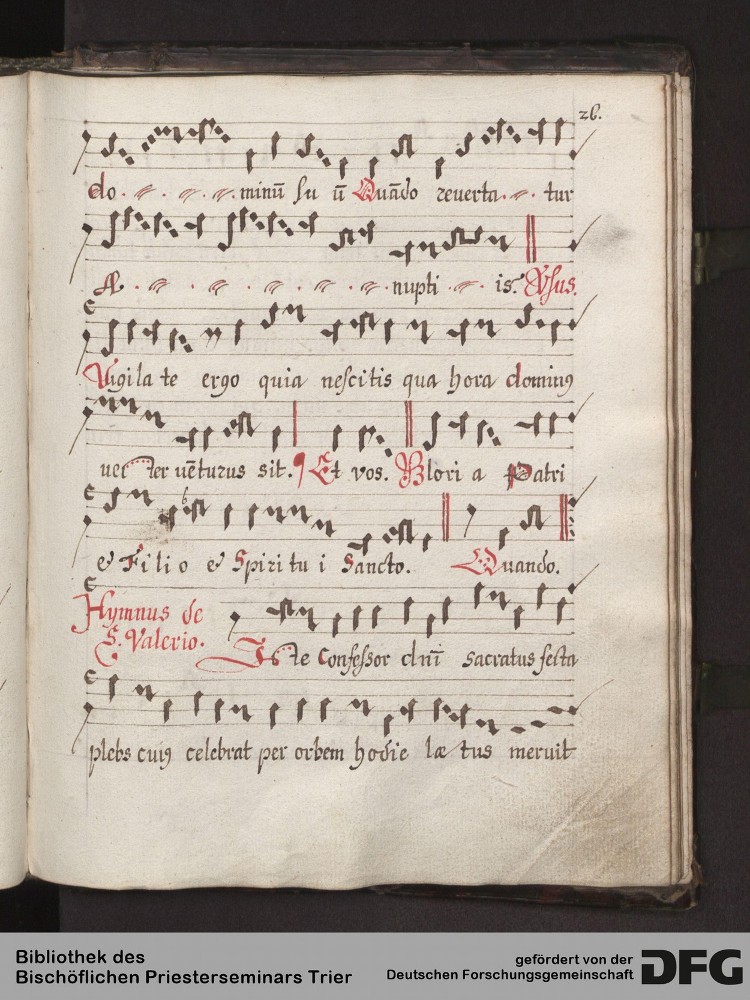 26.
do. minū su ū Quādo reverta. tur
A. nupti. is. Vsus.
Vigila te ergo quia nescitis qua hora dominꝰ
ver ter vēturus sit. Et vos. Glori a Patri
et Filio et Spiritu i Sancto. Quando.
Hymnus de
S. Valerio.
Iste Confessor dnī sacratus festa
plebs cuiꝰ celebrat per orbem hodie lætus meruit
Bibliothek des
Bischöflichen Priesterseminars Trier
gefördert von der
Deutschen Forschungsgemeinschaft DFG